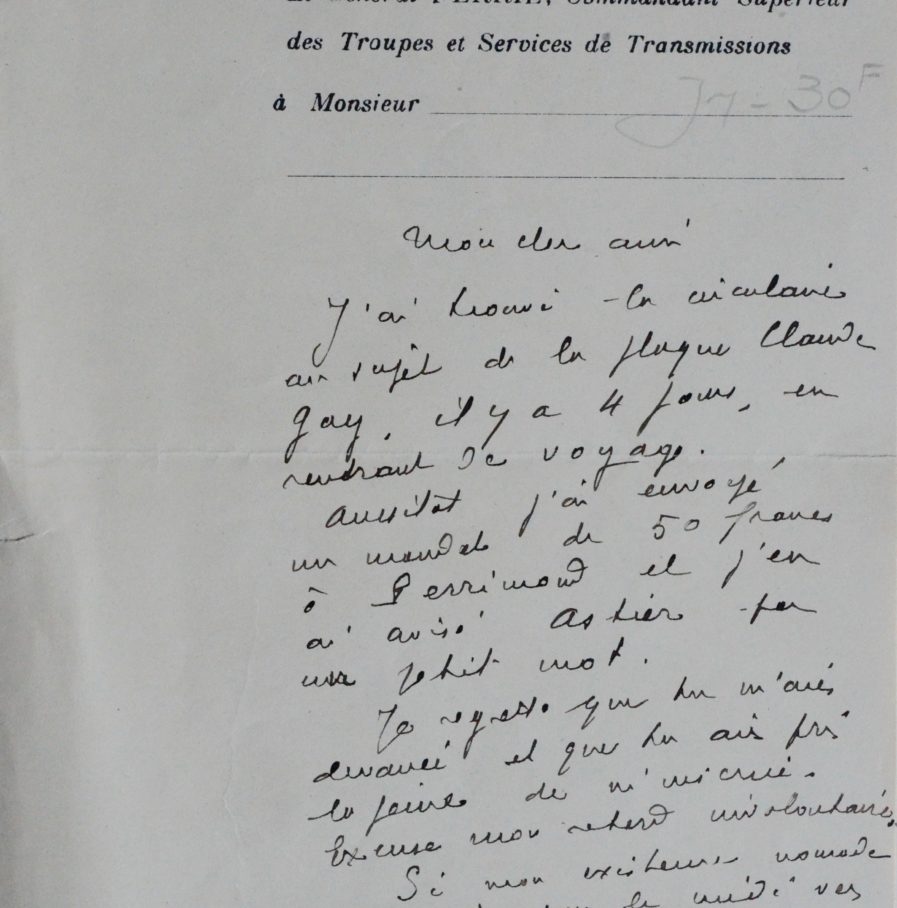 Le Général FERRIÉ, Commandant Supérieur
des Troupes et Services de Transmissions
à Monsieur
30F
Mon cher ami
J'ai trouvé la circulaire
au sujet de la plaque Claude
Gay, il y a 4 jours, en
rentrant de voyage.
Aussitôt j'ai envoyé
un mandat de 50 francs
à Perrimond et j'en
ai avisé Astier par
un petit mot.
Je regrette que tu m'aies
devancé et que tu ais pris
la peine de m'inscrire.
Excuse mon retard involontaire.
Si mon existence nomade
midi vers